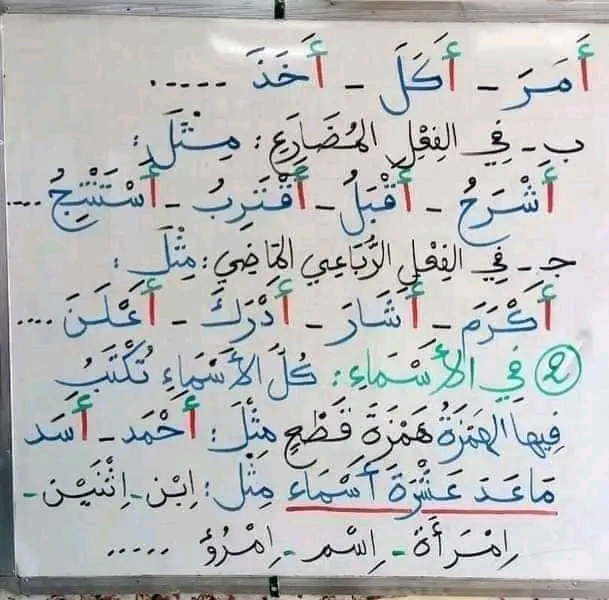 أَمَرَ - أَكَلَ - أَخَذَ .....
ب - فِي الفِعْلِ المُضَارِعِ : مِثْلَ :
أَشْرَحُ - أَقْبَلُ - أَقْتَرِبُ - أَسْتَنْتِجُ ....
جـ - فِي الفِعْلِ الرُّبَاعِي المَاضِي : مِثْلَ :
أَكْرَمَ - أَشَارَ - أَدْرَكَ - أَعْلَنَ ....
2 فِي الأَسْمَاءِ : كُلُّ الأَسْمَاءِ تُكْتَبُ
فِيهَا الهَمْزَةُ هَمْزَةَ قَطْعٍ مِثْلَ : أَحْمَد - أَسَد
مَاعَدَ عَشْرَةَ أَسْمَاء مِثْل : اِبْن - اِثْنَيْن -
اِمْرَأَة - اِسْم - اِمْرُؤ .....